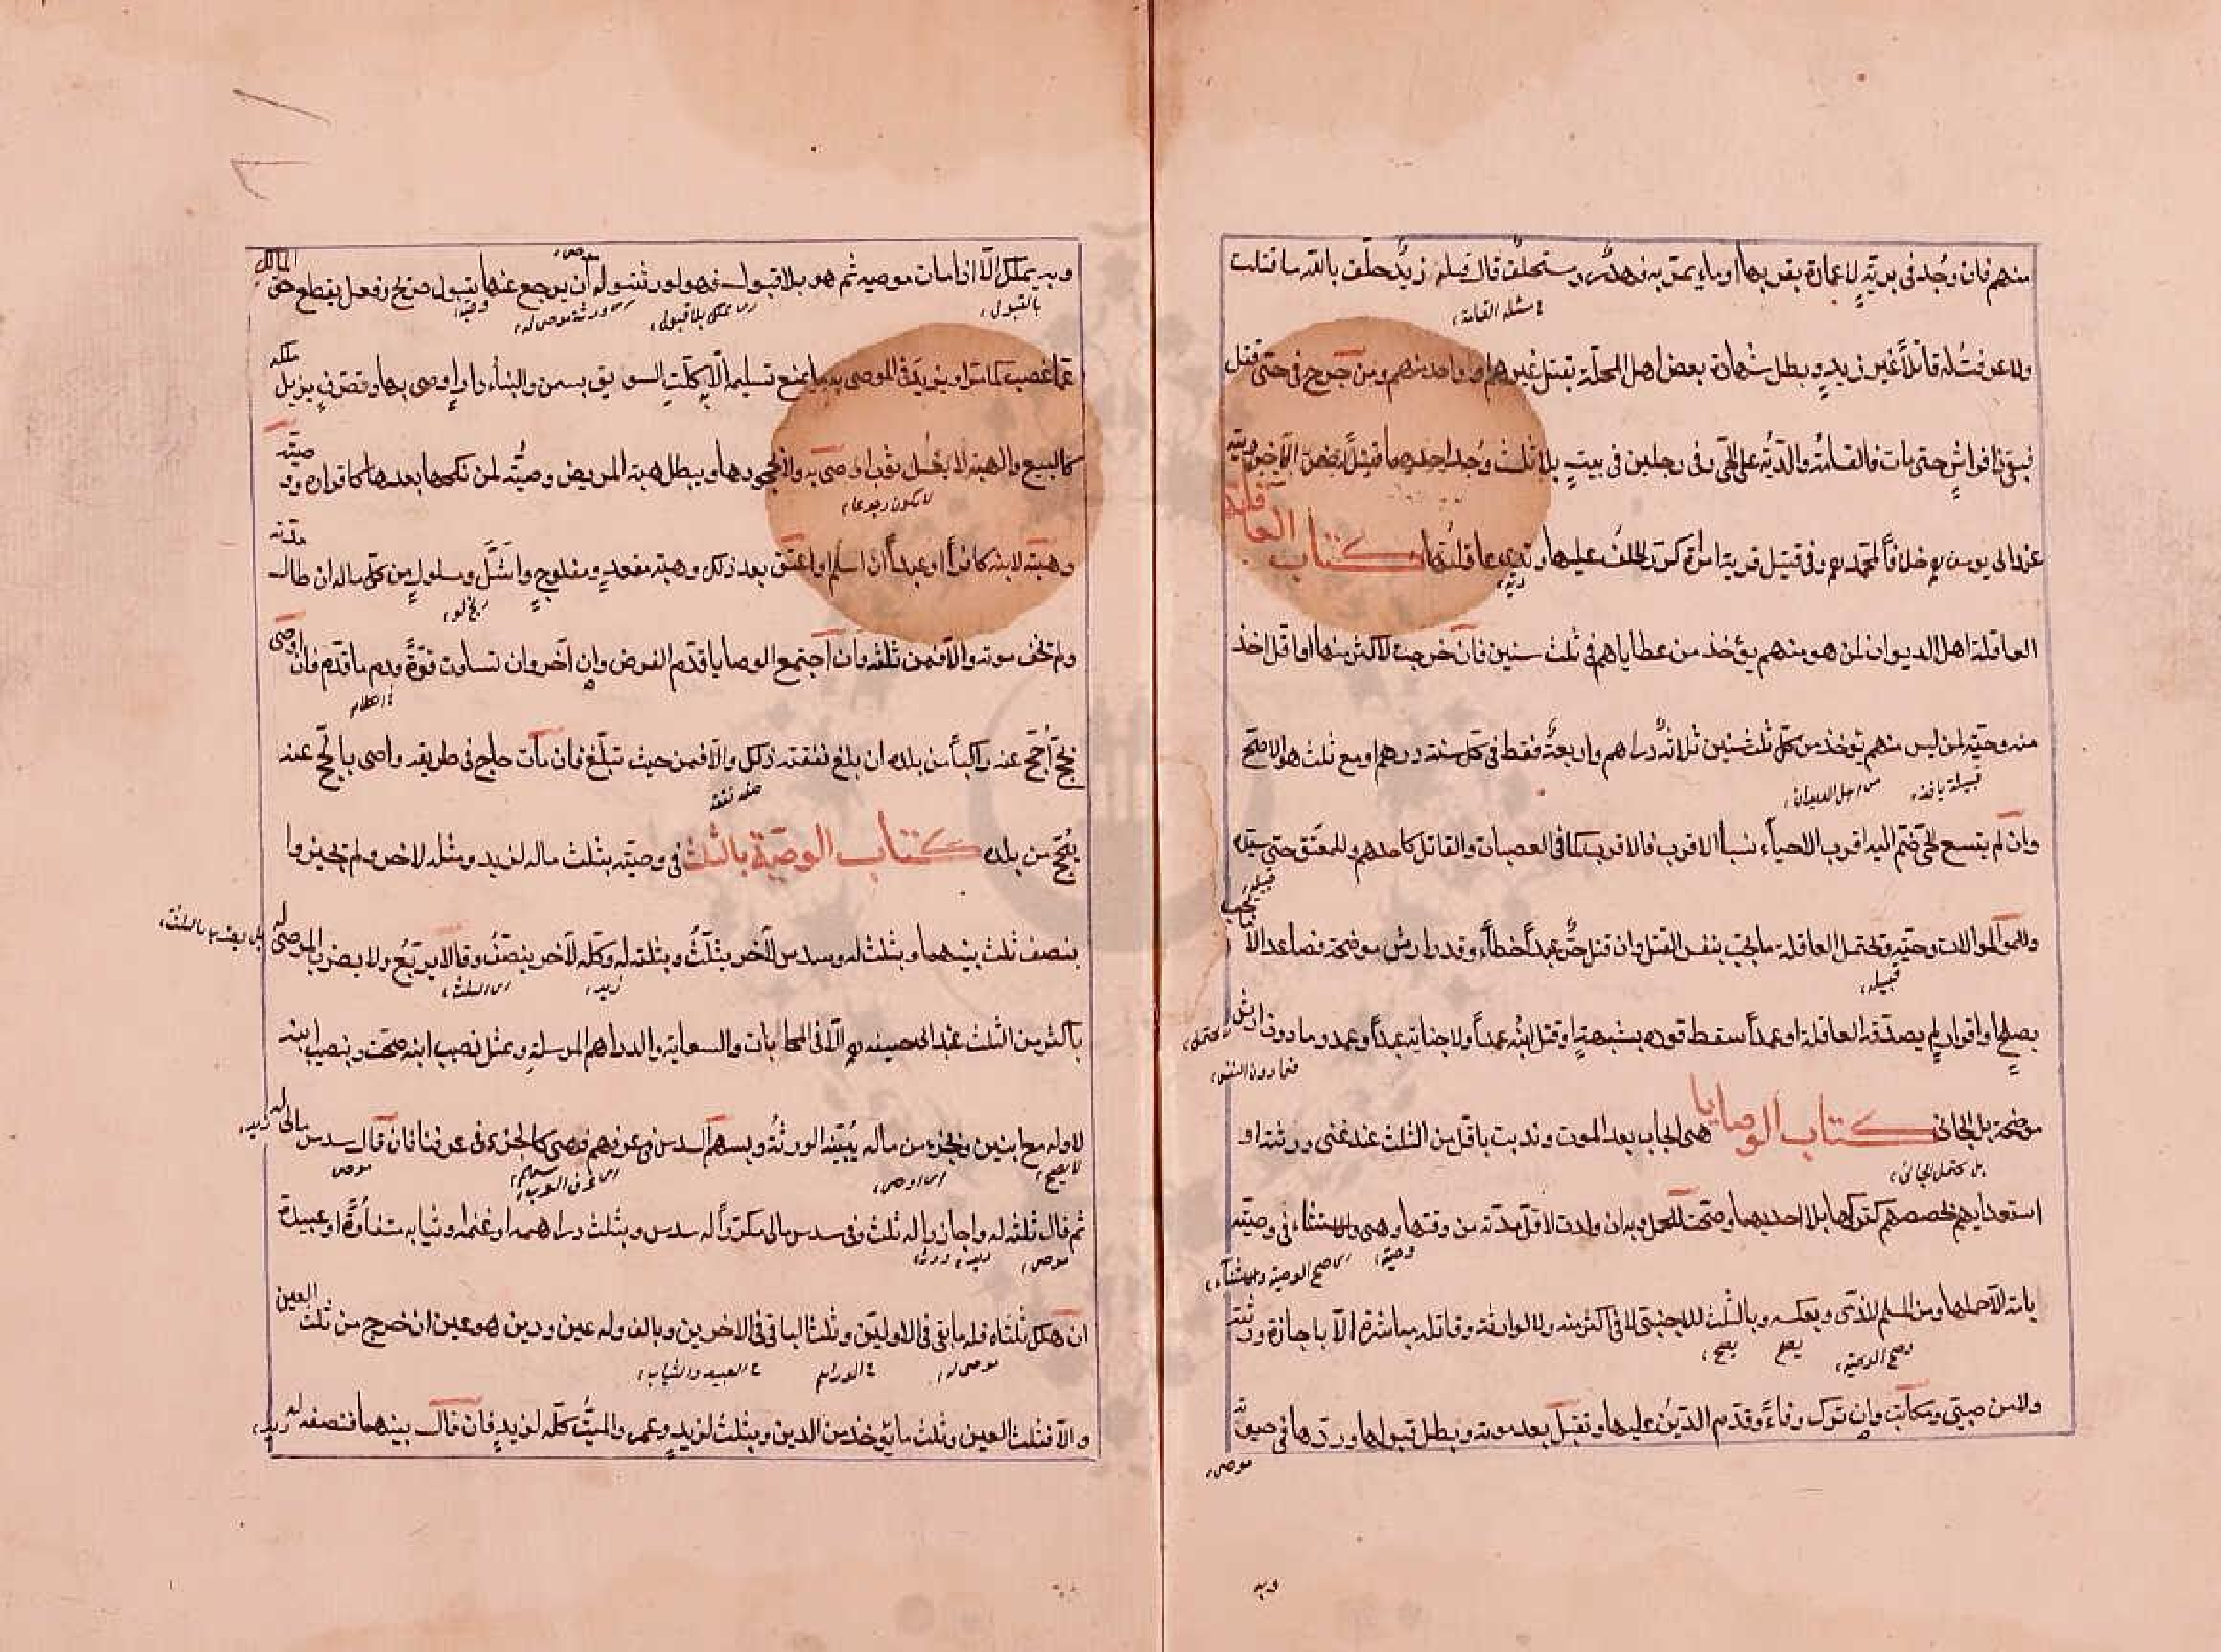 منهم فان وُجد في برية لا عمارة بقربها او ماء يمر به فهدر ومستحلف قال قتله زيد حلف بالله ما قتلت
في مسئلة القسامة
ولا عرفت له قاتلا غير زيد وبطل شهادة بعض اهل المحلة بقتل غيرهم او واحد منهم ومن جرح في حي فنقل
فبقي ذا فراش حتى مات فالقسامة والدية على الحي وفي رجلين في بيت بلا ثالث وُجد احدهما قتيلا يضمن الآخر ديته
عند ابى يوسف رح خلافا لمحمد رح وفي قتيل قرية امراة كرر الحلف عليها وتدي عاقلتها كتاب العاقلة
دية
العاقلة اهل الديوان لمن هو منهم يؤخذ من عطاياهم في ثلث سنين فان خرجت لاكثر منها او اقل اخذ
منه وحيه لمن ليس منهم يؤخذ من كل في ثلث سنين ثلاثة دراهم او اربعة فقط في كل سنة درهم او مع ثلث هو الاصح
من اهل الديوان
وان لم يتسع الحي ضم اليه اقرب الاحياء نسبا الاقرب فالاقرب كما في العصبات والقاتل كاحدهم وللمعتق حي سيده
قبيلة
ولمولى الموالات وحيه وتحتمل العاقلة ما يجب بنفس القتل وان قتل حر عبدا خطأ وقدر ارش موضحة فصاعدا لا ما يجب
قبيلة
بصلح او اقرار لم يصدقه العاقلة او عمدا سقط قوده بشبهة او قتل ابنه عمدا ولا جناية عبد او عمد وما دون ارش
لا تحتمل
فيما دون النفس
موضحة بل الجاني كتاب الوصايا هي ايجاب بعد الموت وندبت باقل من الثلث عند غنى ورثته او
بل تحتمل الجاني
استغنائهم بحصصهم كتركها بلا احدهما وصحت للحمل وبه ان ولدت لاقل مدته من وقتها وهي والاستثناء في وصيته
وصية
اى صح الوصية والاستثناء
بامة الا حملها ومن المسلم للذمى وبعكسه وبالثلث للاجنبي لا في اكثر منه ولا لوارثه وقاتله مباشرة الا باجازة ورثته
وصح الوصية
يصح
يصح
ولا من صبي ومكاتب وان ترك وفاء وقدم الدين عليها وتقبل بعد موته وبطل قبولها وردها في حيوته
موصى
وبه
وبه يملك الا اذا مات موصيه ثم هو بلا قبول فهو لورثته وله ان يرجع عنها بقول صريح او فعل يقطع حق المالك
بالقبول
اى يملك بلا قبول
ورثة موصى له
وصية
عما غصب كما مر او يزيد في الموصى به ما يمنع تسليمه الا به كلت السويق بسمن والبناء في دار اوصى بها وتصرف يزيل ملكه
كالبيع والهبة لا بغسل ثوب اوصى به ولا بجحودها وبطل هبة المريض ووصيته لمن نكحها بعدها كاقراره ووصيته
لا يكون رجوعا
وهبته لابنه كافرا او عبدا ان اسلم او اعتق بعد ذلك وهبة مقعد ومفلوج واشل ومسلول من كل ماله ان طال مدته
ولم يخف موته والا فمن ثلثه فان اجتمع الوصايا قدم الفرض وان اخر وان تساوت قوة قدم ما قدم فان اوصى
في الكلام
بحج أحج عنه راكبا من بلده ان بلغ نفقته ذلك والا فمن حيث تبلغ فان مات حاج في طريقه واوصى بالحج عنه
يحج من بلده كتاب الوصية بالثلث في وصيته بثلث ماله لزيد ومثله لآخر ولم يجيزوا
ينصف ثلث بينهما وبثلث له وسدس لآخر يثلث وبثلثه له وكله لآخر ينصف وقالا يربع ولا يضرب الموصى له
زيد
باكثر من الثلث عند ابى حنيفة رح الا في المحابات والسعاية والدراهم المرسلة وبمثل نصيب ابنه صحت وبنصيب ابنه
لا وله مع ابنين وبجزء من ماله يبينه الورثة وبسهم السدس في عرفهم فهي كالجزء في عرفنا فان قال سدس مالي له
لا يصح
موصى
زيد
ثم قال ثلثه له واجازوا له ثلث وفي سدس مالي مكررا له سدس وبثلث دراهمه او غنمه او ثيابه متفاوتة او عبيده
موصى
ان هلك ثلثاه فله ما بقي في الاولين وثلث الباقي في الاخرين وبالف وله عين ودين هو عين ان خرج من ثلث العين
موصى له
في الدراهم
في العبيد والثياب
والا فثلث العين وثلث ما يؤخذ من الدين وبثلث لزيد وعمرو والميت كله لزيد فان قال بينهما فنصفه له
زيد